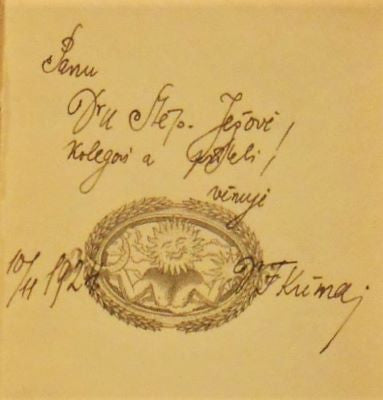 Panu
Dru Štěp. Ježovi
kolegovi a příteli
věnuje
10/11 192
Dr F Kůma